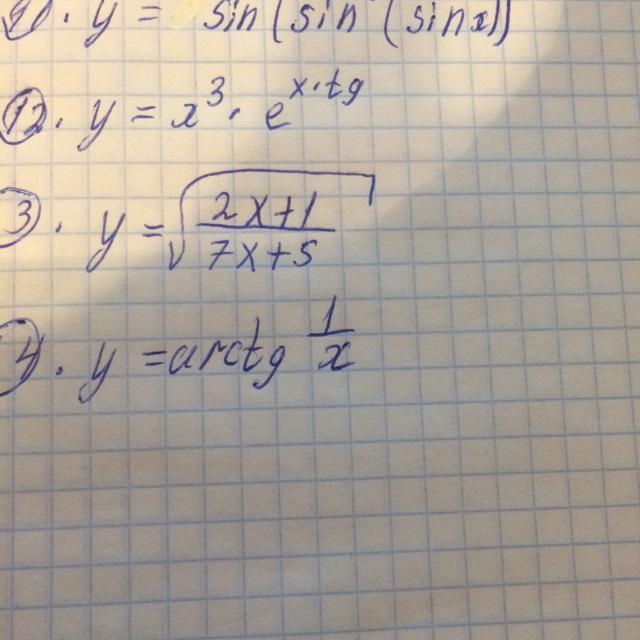 1). y = sin(sin(sinx))
12. y = x³ · e^x·tg
3. y = √(2x+1 / 7x+5)
4. y = arctg 1/x